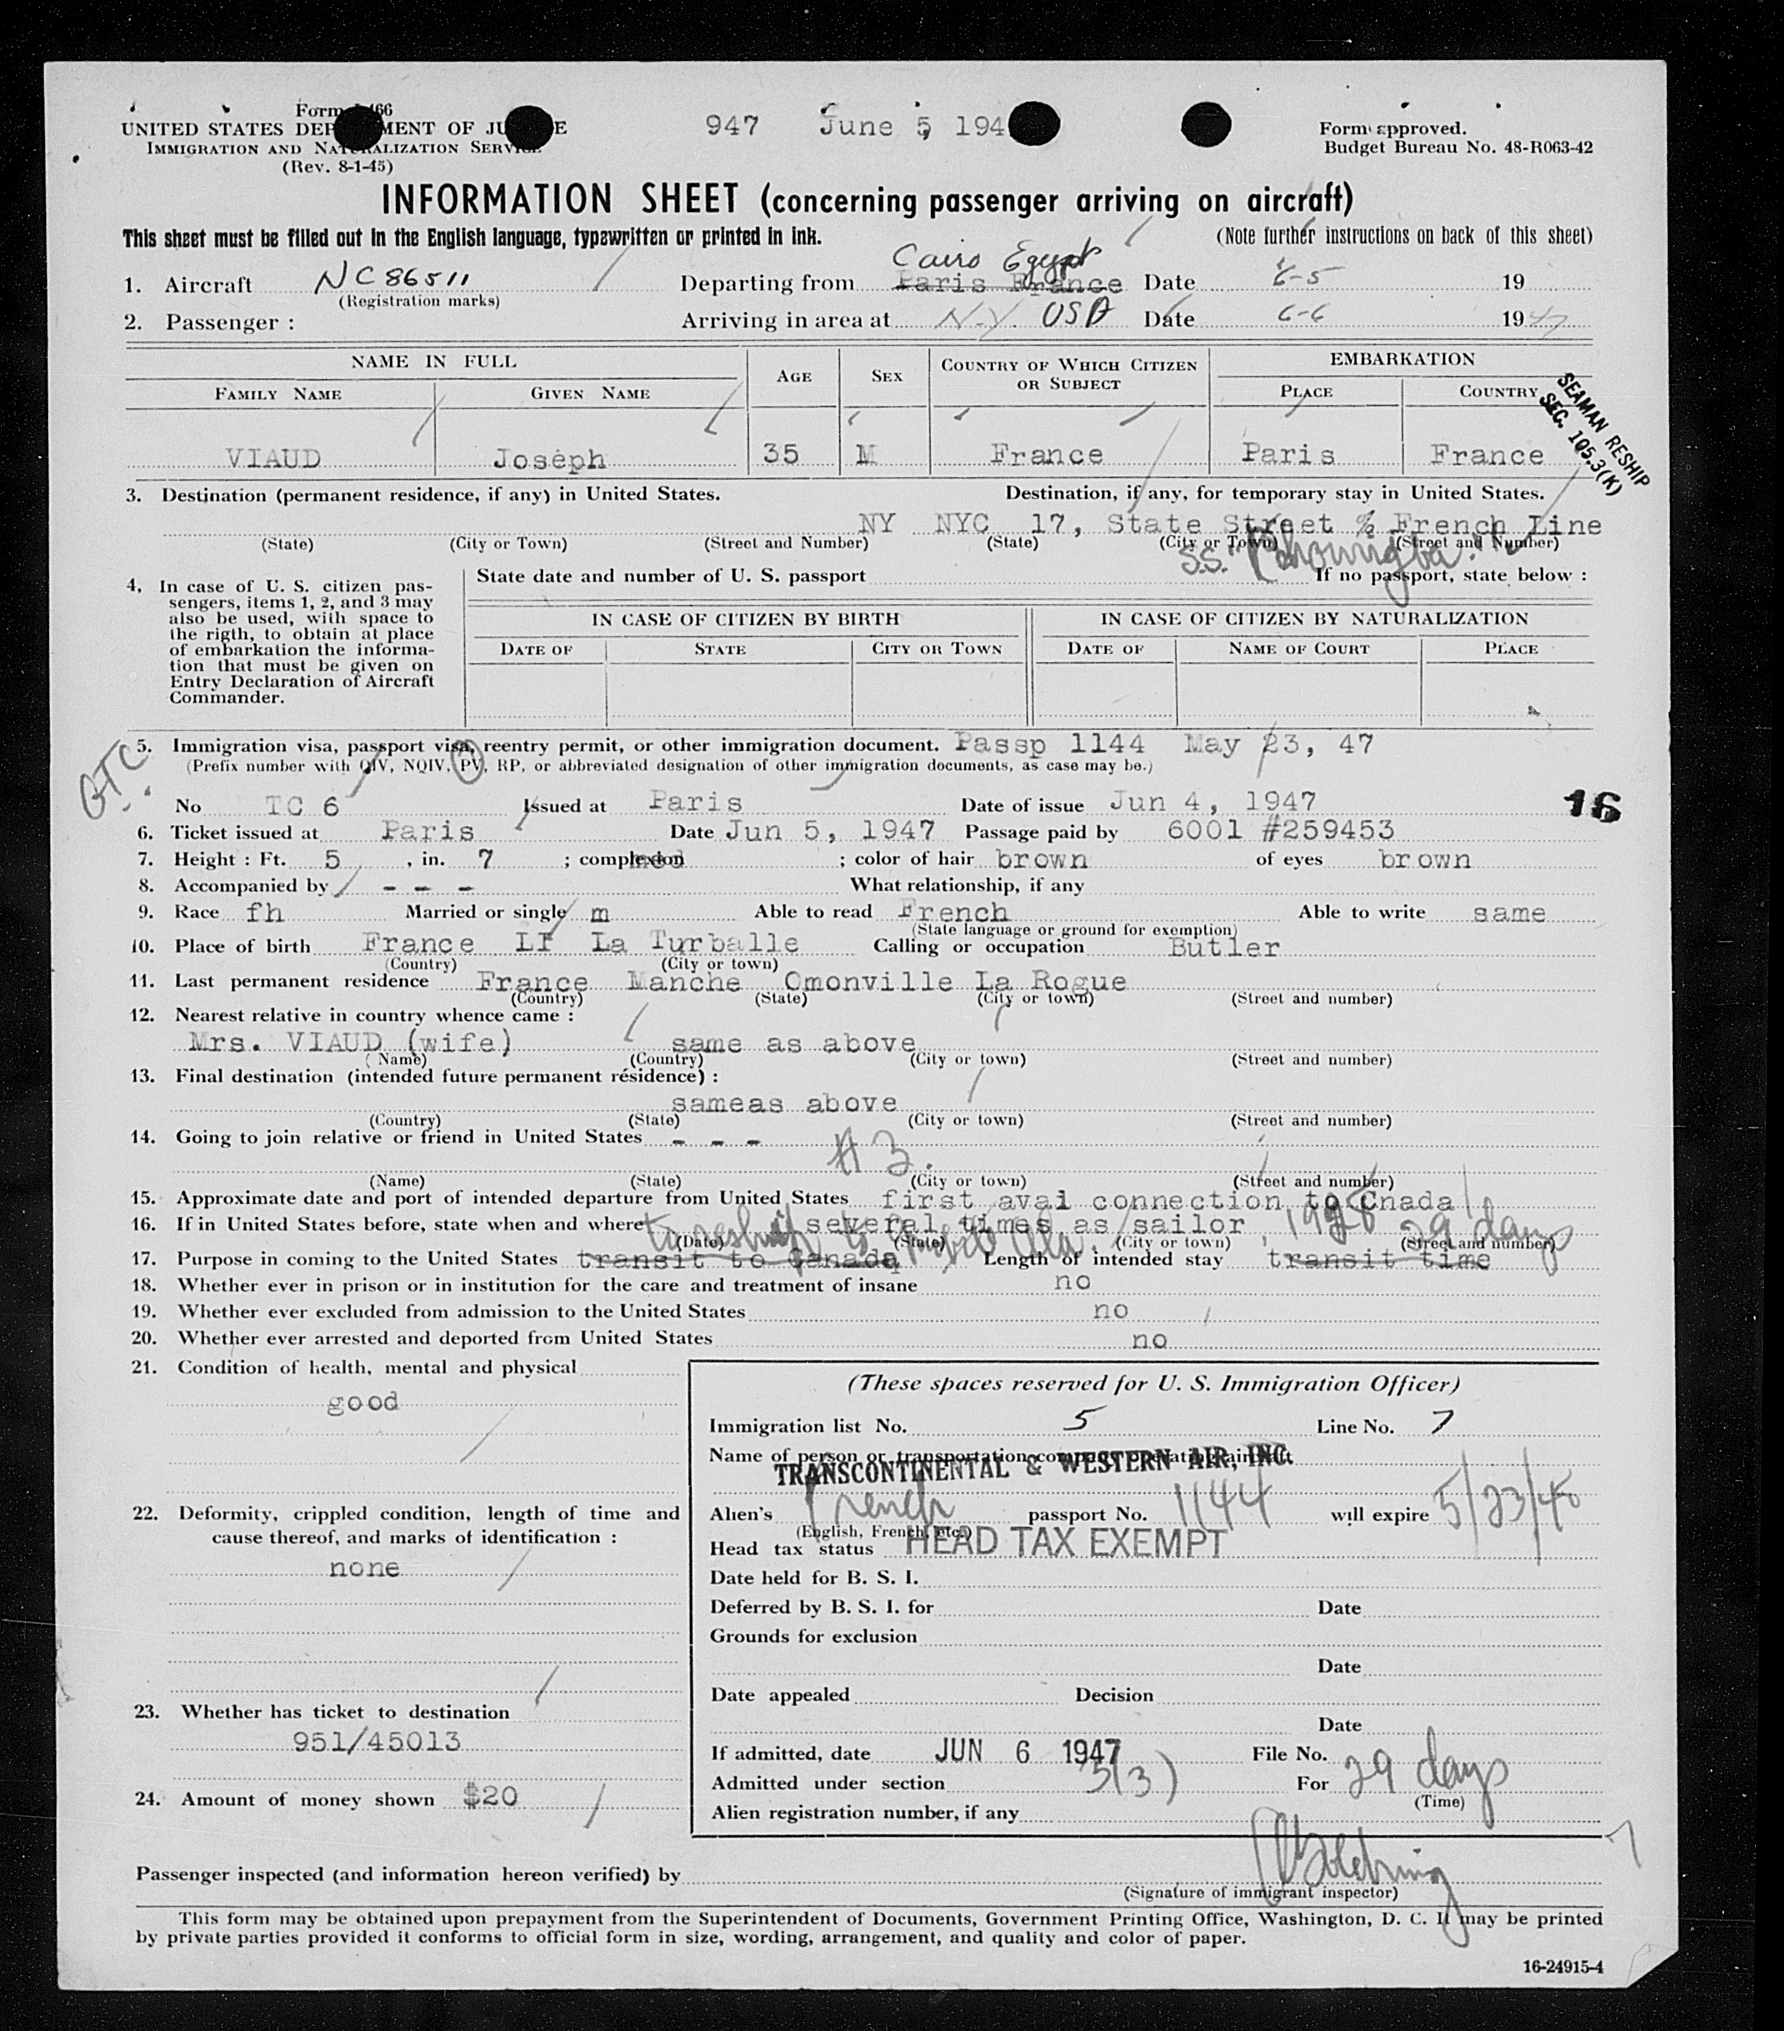 Form 466
947 June 5, 194
Form approved.
UNITED STATES DEP MENT OF JU E
Budget Bureau No. 48-R063-42
IMMIGRATION AND NATURALIZATION SERVICE
(Rev. 8-1-45)
INFORMATION SHEET (concerning passenger arriving on aircraft)
This sheet must be filled out in the English language, typewritten or printed in ink.
(Note further instructions on back of this sheet)
Cairo Egypt
1. Aircraft NC86511 Departing from Paris France Date 6-5 19
(Registration marks)
2. Passenger : Arriving in area at N.Y. USA Date 6-6 1947
NAME IN FULL AGE SEX COUNTRY OF WHICH CITIZEN OR SUBJECT EMBARKATION
FAMILY NAME GIVEN NAME PLACE COUNTRY
SEAMAN RESHIP
SEC. 105.3(K)
VIAUD Joseph 35 M France Paris France
3. Destination (permanent residence, if any) in United States. Destination, if any, for temporary stay in United States.
NY NYC 17, State Street % French Line
(State) (City or Town) (Street and Number) (State) (City or Town) (Street and Number)
S.S.
4. In case of U. S. citizen pas-
sengers, items 1, 2, and 3 may
also be used, with space to
the rigth, to obtain at place
of embarkation the informa-
tion that must be given on
Entry Declaration of Aircraft
Commander.
State date and number of U. S. passport If no passport, state below :
IN CASE OF CITIZEN BY BIRTH IN CASE OF CITIZEN BY NATURALIZATION
DATE OF STATE CITY OR TOWN DATE OF NAME OF COURT PLACE
5. Immigration visa, passport visa, reentry permit, or other immigration document. Passp 1144 May 23, 47
(Prefix number with QIV, NQIV, PV, RP, or abbreviated designation of other immigration documents, as case may be.)
No TC 6 Issued at Paris Date of issue Jun 4, 1947 16
6. Ticket issued at Paris Date Jun 5, 1947 Passage paid by 6001 #259453
7. Height : Ft. 5 , in. 7 ; complexion med ; color of hair brown of eyes brown
8. Accompanied by - - - What relationship, if any
9. Race fh Married or single m Able to read French Able to write same
(State language or ground for exemption)
10. Place of birth France LI La Turballe Calling or occupation Butler
(Country) (City or town)
11. Last permanent residence France Manche Omonville La Rogue
(Country) (State) (City or town) (Street and number)
12. Nearest relative in country whence came :
Mrs. VIAUD (wife) same as above
(Name) (Country) (City or town) (Street and number)
13. Final destination (intended future permanent résidence) :
sameas above
(Country) (State) (City or town) (Street and number)
14. Going to join relative or friend in United States - - -
#3.
(Name) (State) (City or town) (Street and number)
15. Approximate date and port of intended departure from United States first avai connection to Cnada
16. If in United States before, state when and where several times as sailor , 1928 29 days
(Date) (State) (City or town) (Street and number)
to reship to Mobile Ala.
17. Purpose in coming to the United States transit to Canada Length of intended stay transit time
18. Whether ever in prison or in institution for the care and treatment of insane no
19. Whether ever excluded from admission to the United States no
20. Whether ever arrested and deported from United States no
21. Condition of health, mental and physical
good
22. Deformity, crippled condition, length of time and
cause thereof, and marks of identification :
none
23. Whether has ticket to destination
951/45013
24. Amount of money shown $20
(These spaces reserved for U. S. Immigration Officer)
Immigration list No. 5 Line No. 7
Name of person or transportation company operating aircraft
TRANSCONTINENTAL & WESTERN AIR, INC.
Alien's French passport No. 1144 will expire 5/23/48
(English, French, etc.)
Head tax status HEAD TAX EXEMPT
Date held for B. S. I.
Deferred by B. S. I. for Date
Grounds for exclusion
Date
Date appealed Decision
Date
If admitted, date JUN 6 1947 File No.
Admitted under section 3(3) For 29 days
(Time)
Alien registration number, if any
Passenger inspected (and information hereon verified) by
(Signature of immigrant inspector)
This form may be obtained upon prepayment from the Superintendent of Documents, Government Printing Office, Washington, D. C. It may be printed
by private parties provided it conforms to official form in size, wording, arrangement, and quality and color of paper.
16-24915-4